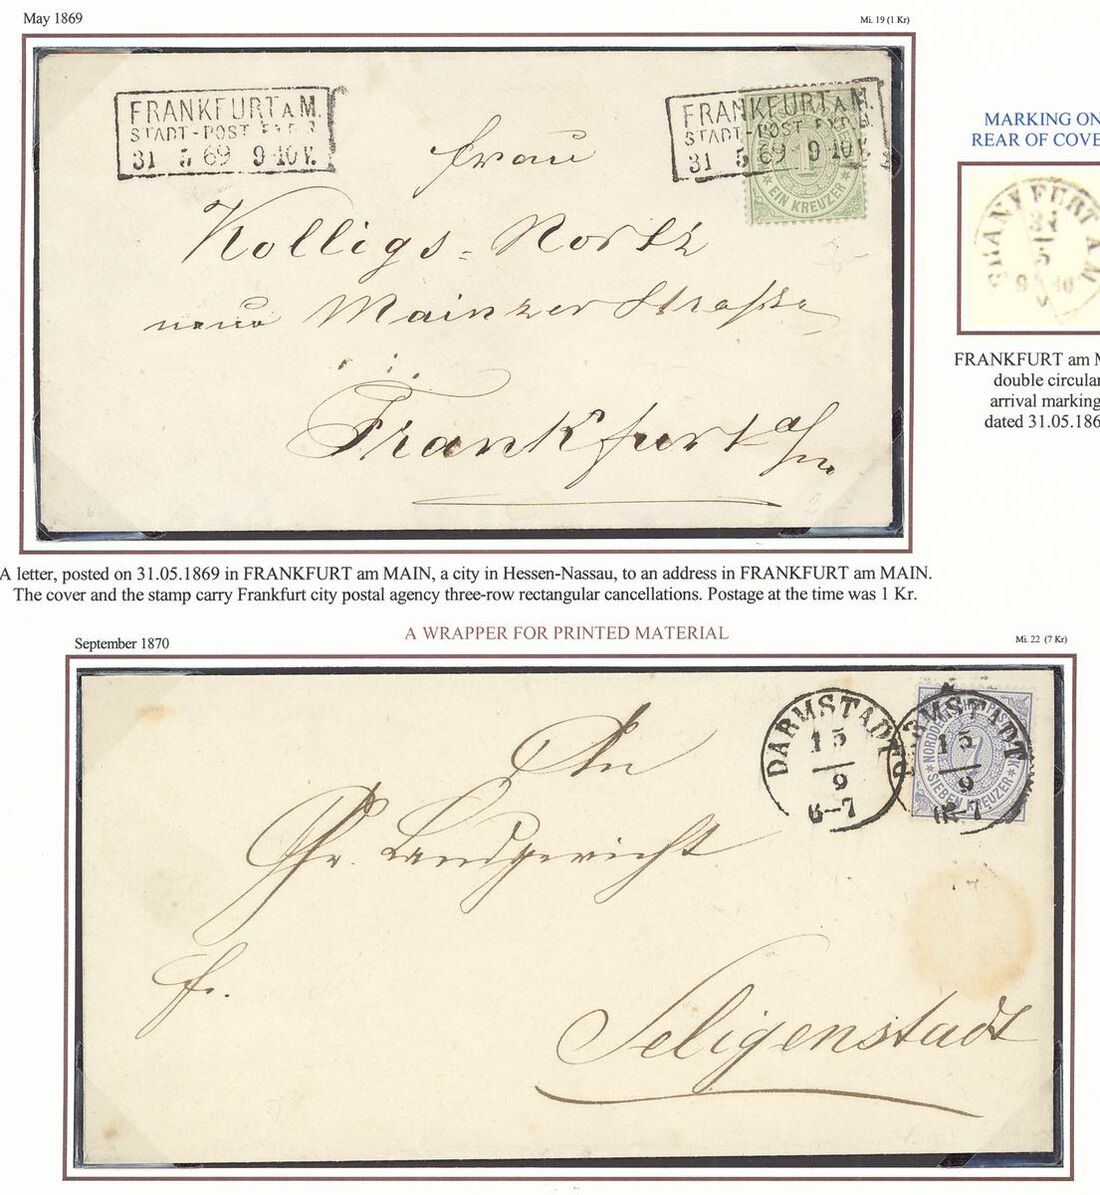 May 1869
Mi. 19 (1 Kr)
FRANKFURT A M.
STADT-POST EXP.
31 5 69 9-10 V.
FRANKFURT A M.
STADT-POST EXP.
31 5 69 9-10 V.
1
EIN KREUZER
Frau
Kolligs-
neue Mainzer Straße
Frankfurt a/m
MARKING ON
REAR OF COVE
FRANKFURT A M
31
5
9 10
V
FRANKFURT am M
double circular
arrival marking
dated 31.05.186
A letter, posted on 31.05.1869 in FRANKFURT am MAIN, a city in Hessen-Nassau, to an address in FRANKFURT am MAIN.
The cover and the stamp carry Frankfurt city postal agency three-row rectangular cancellations. Postage at the time was 1 Kr.
September 1870
A WRAPPER FOR PRINTED MATERIAL
Mi. 22 (7 Kr)
DARMSTADT
15
9
6-7
DARMSTADT
15
9
6-7
7
SIEBEN KREUZER
An
Gr. Landgericht
fr.
Seligenstadt